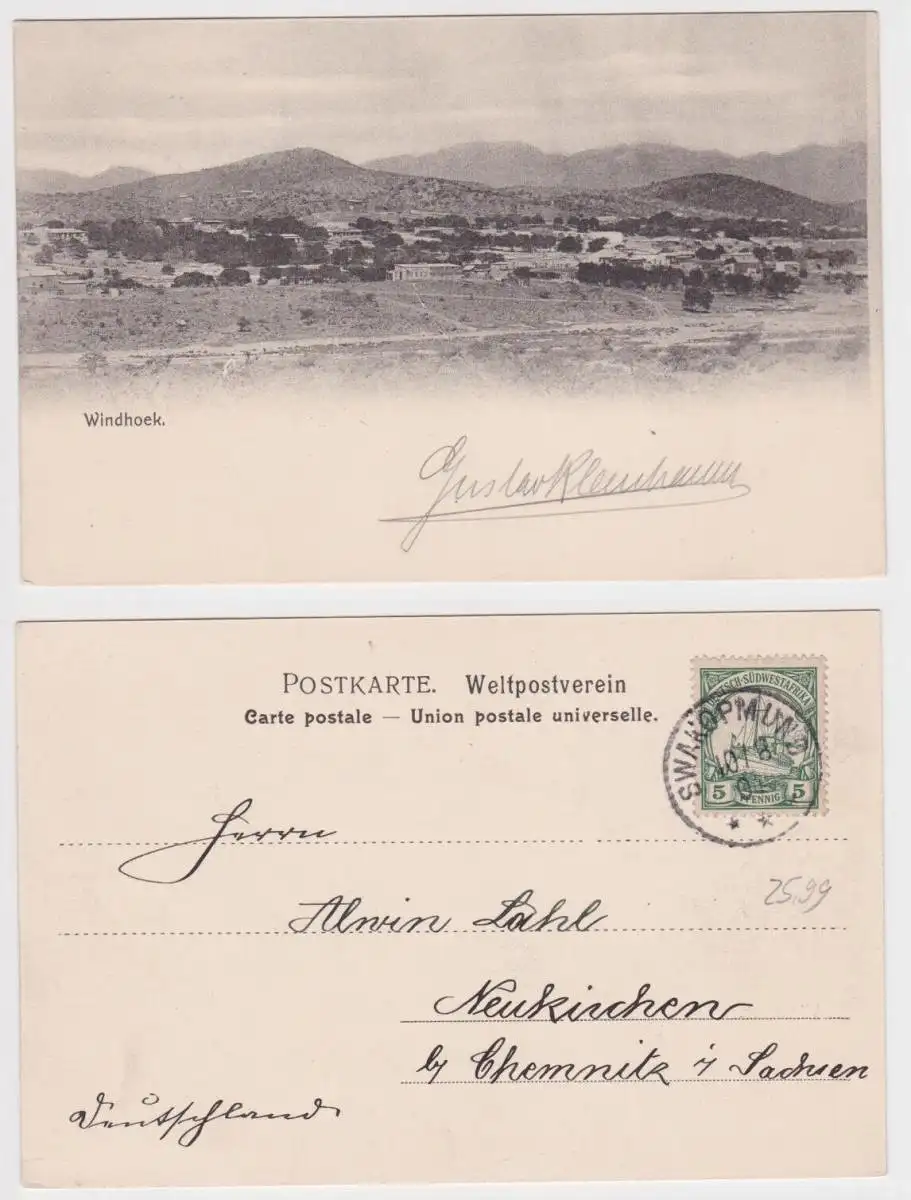 Windhoek.
Gustav Kleinhamm
POSTKARTE. Weltpostverein
Carte postale — Union postale universelle.
DEUTSCH-SÜDWESTAFRIKA
SWAKOPMUND
5 PFENNIG 5
Herrn
25,99
Alwin Lahl
Neukirchen
b/ Chemnitz i/ Sachsen
Deutschland